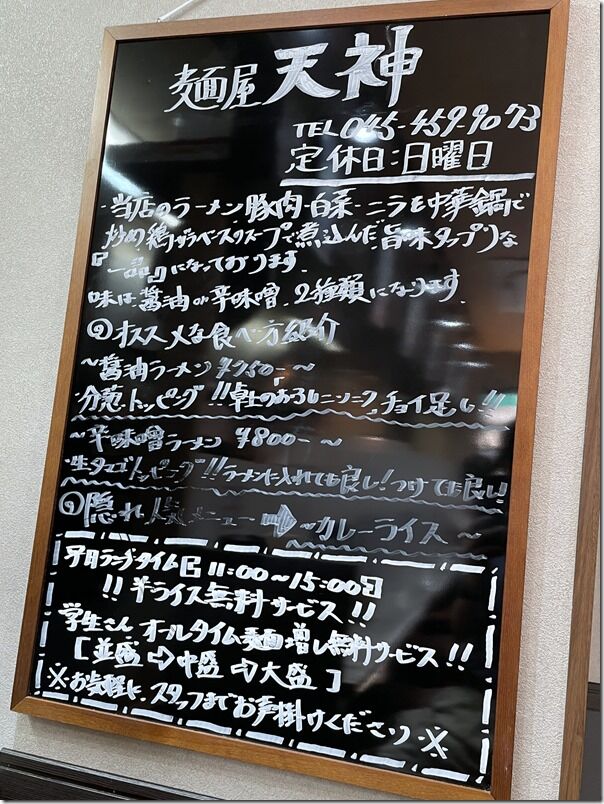 麺屋 天神
TEL 045-459-9073
定休日:日曜日
・当店のラーメン 豚肉・白菜・ニラを中華鍋で
炒め 鶏ガラベーススープで煮込んだ旨味タップリな
『一品』になっております。
味は、醤油 or 辛味噌、2種類になります。
オススメな食べ方紹介
~醤油ラーメン ¥750-~
・分葱トッピング!!卓上のおろしニンニク、チョイ足し!!
~辛味噌ラーメン ¥800-~
・生タマゴトッピング!!ラーメンに入れても良し!つけても良し!
隠れ人気メニュー ➡ ~カレーライス~
平日ランチタイム『11:00~15:00』
!!半ライス無料サービス!!
学生さん オールタイム麺増し無料サービス!!
[並盛⇨中盛⇨大盛]
※お気軽に、スタッフまでお声掛けください※